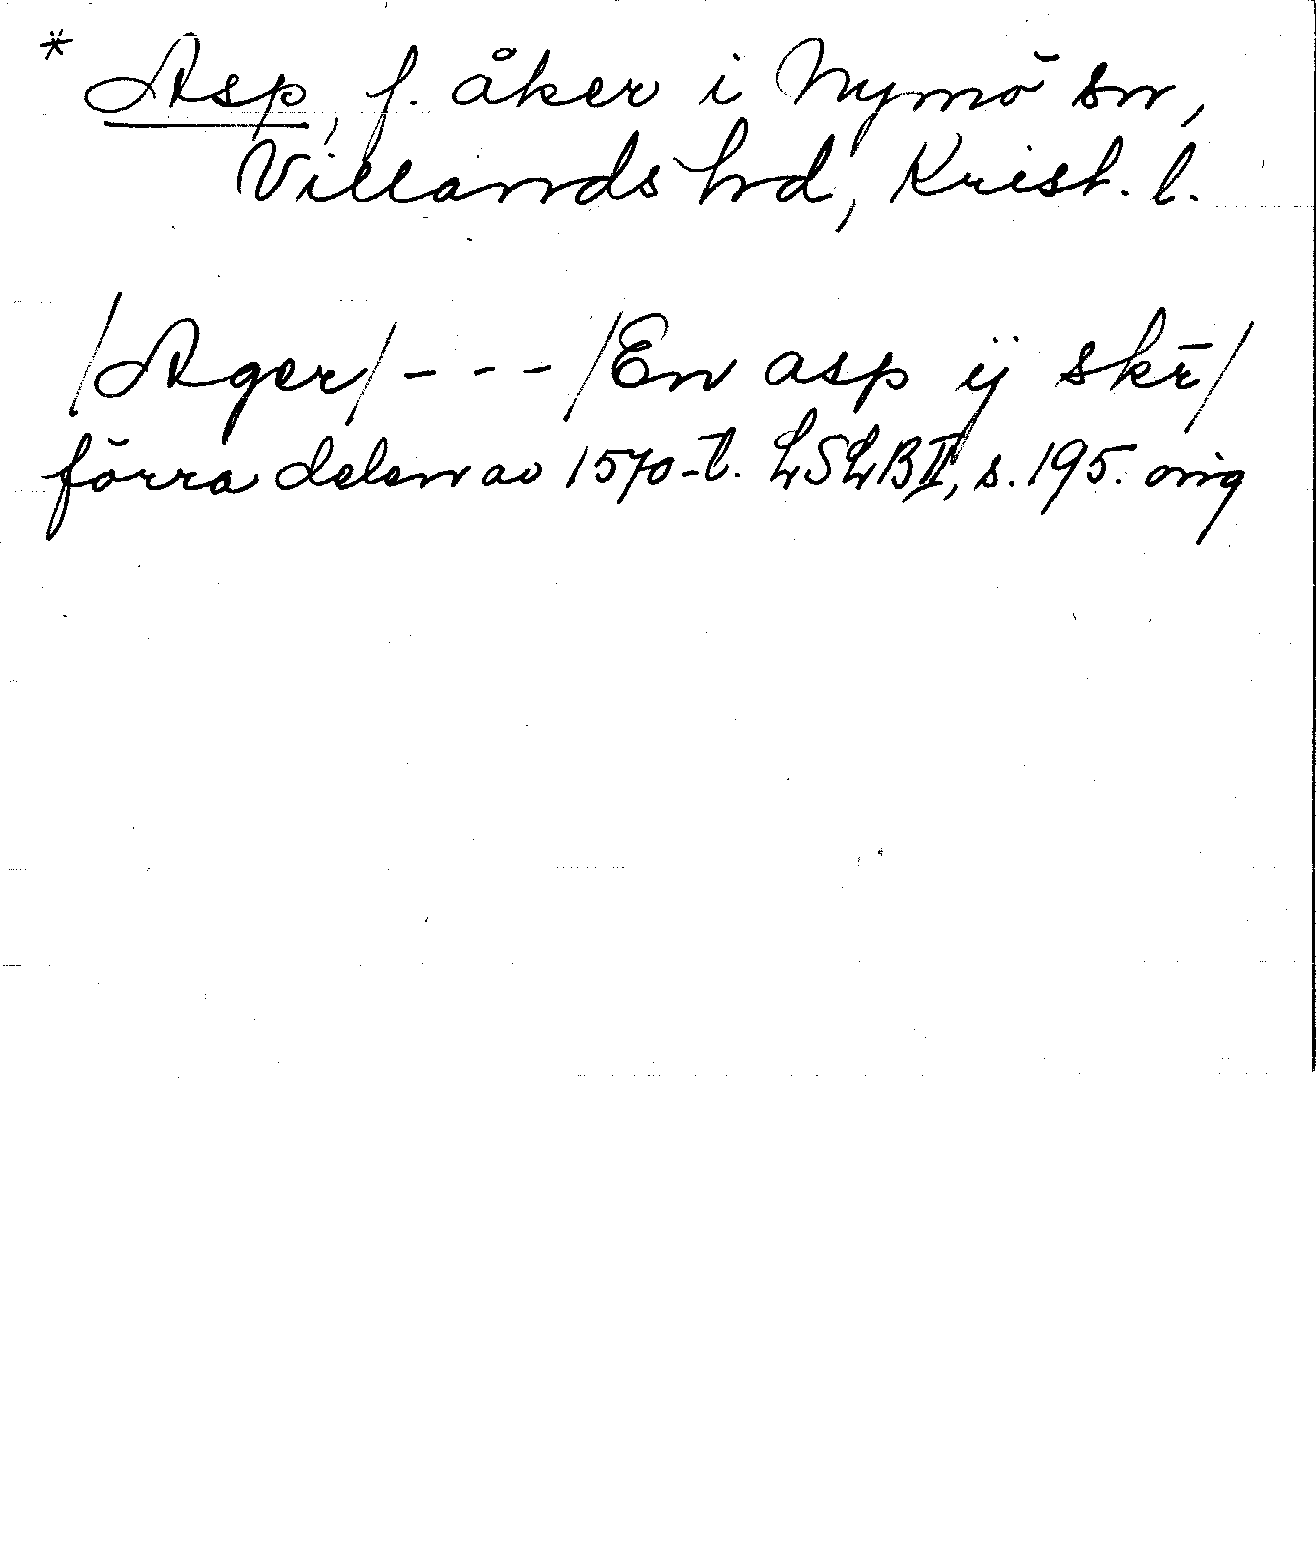 * Asp, f. åker i Nymö sn,
Villands hd, Krist. l.
/Ager/ - - - /En asp ij skr̄/
förra delen av 1570-t. LSLB II, s. 195. orig